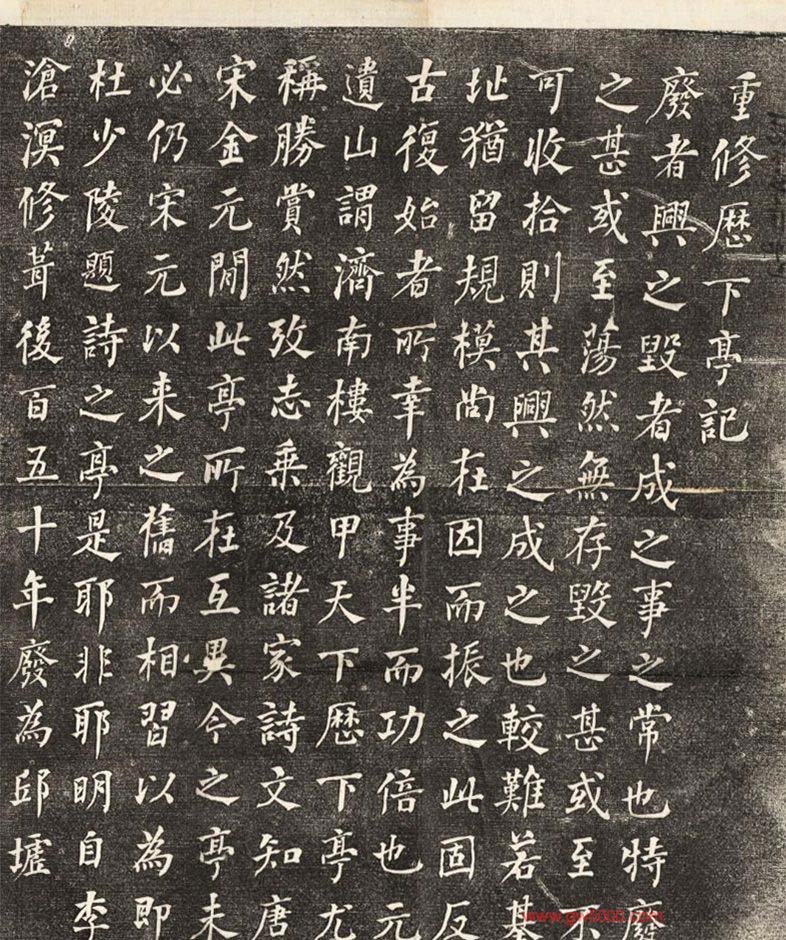 重修歷下亭記
廢者興之毀者成之事之常也特廢
之甚或至蕩然無存毀之甚或至不
可收拾則其興之成之也較難若基
址猶留規模尚在因而振之此固反
古復始者所幸為事半而功倍也元
遺山謂濟南樓觀甲天下歷下亭尤
稱勝賞然攷志乘及諸家詩文知唐
宋金元間此亭所在互異今之亭未
必仍宋元以来之舊而相習以為即
杜少陵題詩之亭是耶非耶明自李
滄溟修葺後百五十年廢為邱墟